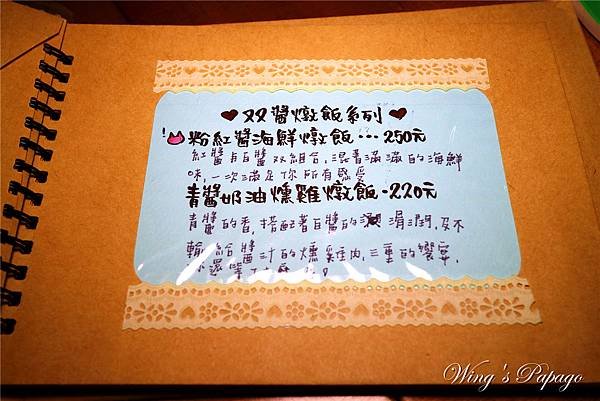 双醬燉飯系列
粉紅醬海鮮燉飯…250元
紅醬與白醬双組合,混著滿滿的海鮮
味,一次滿足你所有感受
青醬奶油燻雞燉飯-220元
青醬的香,搭配著白醬的滑潤,及不
輸給醬汁的燻雞肉,三重的饗宴,
還
Wing's Papago